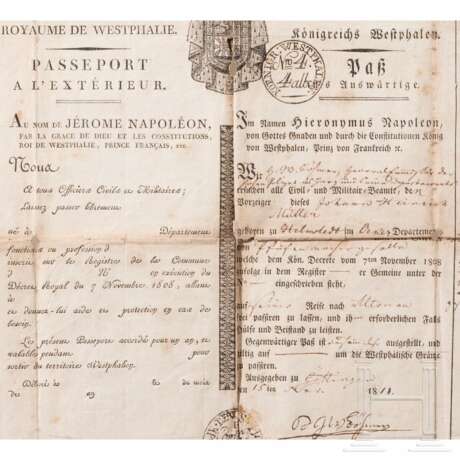 ROYAUME DE WESTPHALIE.
PASSEPORT
A L'EXTÉRIEUR.
AU NOM DE JÉROME NAPOLÉON,
PAR LA GRACE DE DIEU ET LES CONSTITUTIONS,
ROI DE WESTPHALIE, PRINCE FRANÇAIS, etc.
Nous
A tous Officiers Civils et Militaires;
Laissez passer librement
né à Département
fonctions ou profession d
inscrit sur les Registres de la Commune
d N.º en exécution du
Décret Royal du 7 Novembre 1808, allant
à
et donnez-lui aide et protection en cas de
besoin.
Les présens Passeports accordés pour un an, et
valables pendant pour
sortir du territoire Westphalien.
Délivré à le du mois
de an
Königreichs Westphalen.
Paß
ins Auswärtige.
WESTPHALEN
4
Im Namen Hieronymus Napoleon,
von Gottes Gnaden und durch die Constitutionen König
von Westphalen, Prinz von Frankreich ꝛc.
Wir
ersuchen alle Civil- und Militair-Beamte, de
Vorzeiger dieses Johann Heinrich
Müller
geboren zu Helmstedt im Ocker Departement
welche dem Kön. Decrete vom 7ten November 1808
zufolge in dem Register er Gemeine unter der
eingeschrieben steht,
auf seiner Reise nach Altona
zu passiren zu lassen, und ih erforderlichen Falls
Hülfe und Beistand zu leisten.
Gegenwärtiger Paß ist ausgestellt, und
gültig auf um die Westphälische Gränze
zu passiren.
Ausgegeben zu Göttingen
den 15ten 1811.